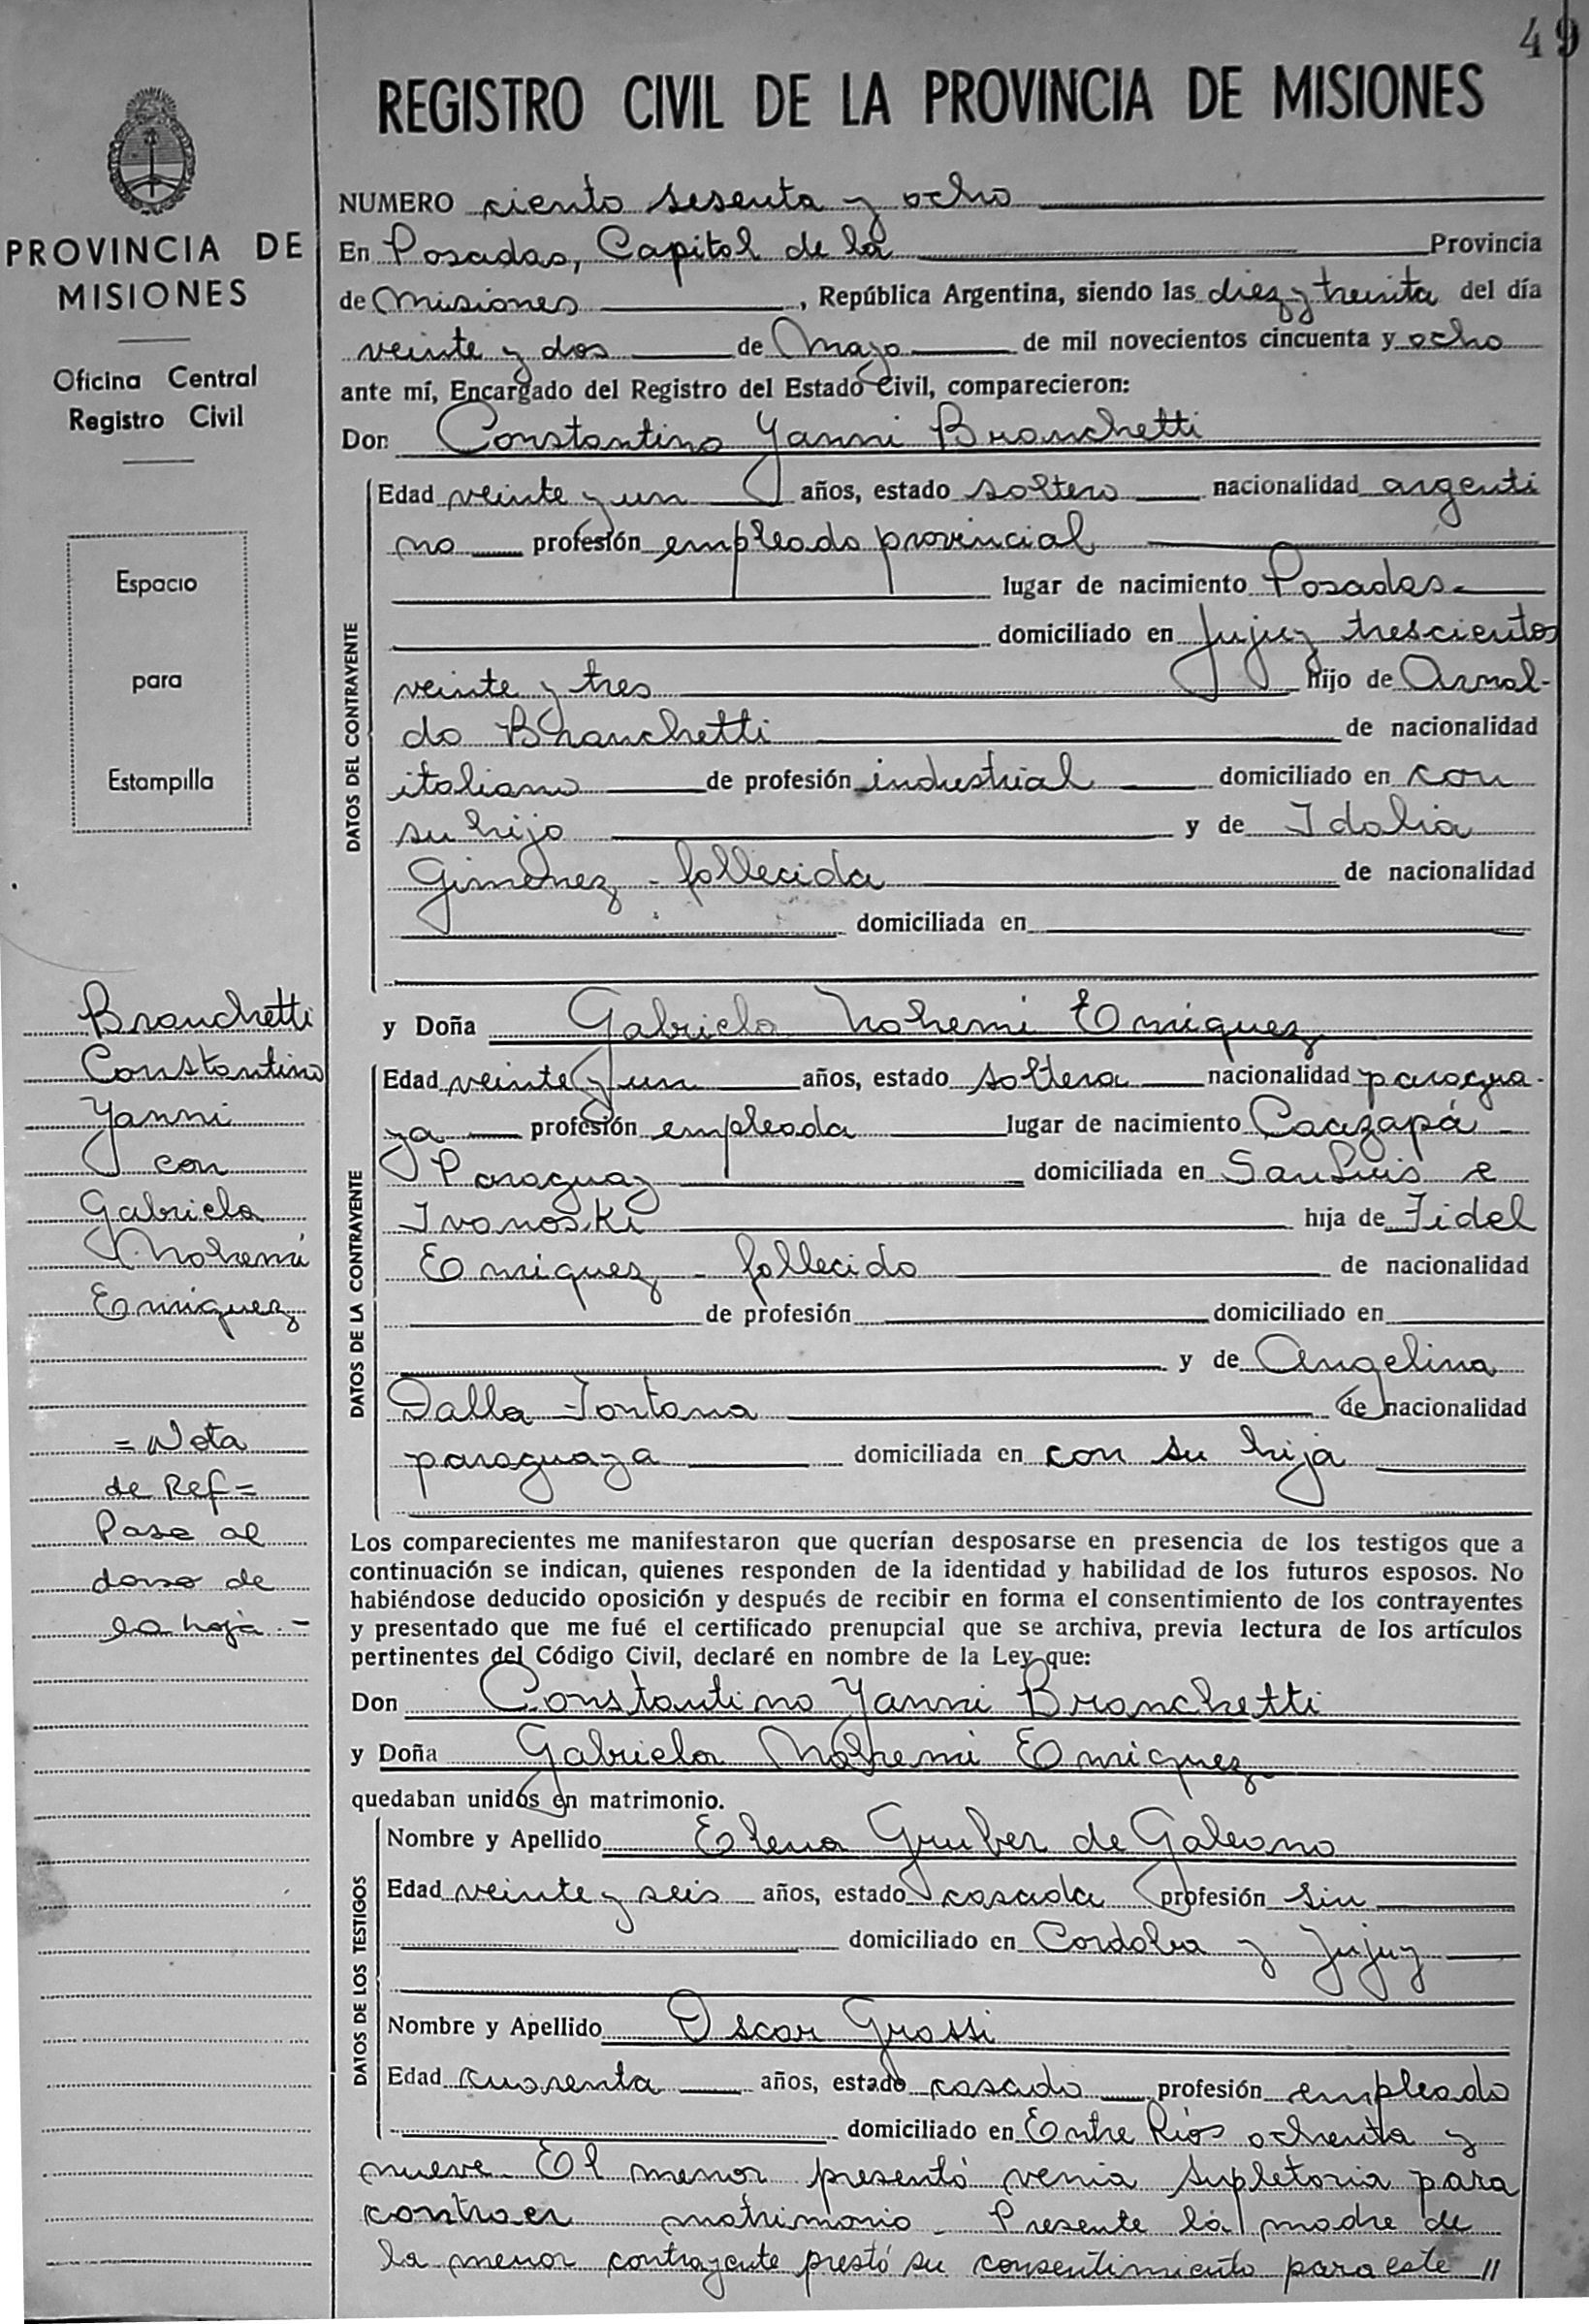 49
REGISTRO CIVIL DE LA PROVINCIA DE MISIONES
PROVINCIA DE
MISIONES
Oficina Central
Registro Civil
Espacio
para
Estampilla
Branchetti
Constantino
Yanni
con
Gabriela
Nohemi
Enriquez
= Nota
de Ref =
Pase al
dorso de
la hoja. -
NUMERO ciento sesenta y ocho
En Posadas, Capital de la Provincia
de Misiones, República Argentina, siendo las diez y treinta del día
veinte y dos de Mayo de mil novecientos cincuenta y ocho
ante mí, Encargado del Registro del Estado Civil, comparecieron:
Don Constantino Yanni Branchetti
DATOS DEL CONTRAYENTE
Edad veinte y un años, estado soltero nacionalidad argenti
no profesión empleado provincial
lugar de nacimiento Posadas
domiciliado en Jujuy trescientos
veinte y tres hijo de Arnal-
do Branchetti de nacionalidad
italiano de profesión industrial domiciliado en con
su hijo y de Idalia
Gimenez - fallecida de nacionalidad
domiciliada en
y Doña Gabriela Nohemi Enriquez
DATOS DE LA CONTRAYENTE
Edad veinte y un años, estado soltera nacionalidad paragua-
ya profesión empleada lugar de nacimiento Caazapá
Paraguay domiciliada en San Luis e
Ivanoski hija de Fidel
Enriquez - fallecido de nacionalidad
de profesión domiciliado en
y de Angelina
Dalla Fontana de nacionalidad
paraguaya domiciliada en con su hija
Los comparecientes me manifestaron que querían desposarse en presencia de los testigos que a
continuación se indican, quienes responden de la identidad y habilidad de los futuros esposos. No
habiéndose deducido oposición y después de recibir en forma el consentimiento de los contrayentes
y presentado que me fué el certificado prenupcial que se archiva, previa lectura de los artículos
pertinentes del Código Civil, declaré en nombre de la Ley que:
Don Constantino Yanni Branchetti
y Doña Gabriela Nohemi Enriquez
quedaban unidos en matrimonio.
DATOS DE LOS TESTIGOS
Nombre y Apellido Elena Gruber de Galeano
Edad veinte y seis años, estado casada profesión sin
domiciliado en Cordoba y Jujuy
Nombre y Apellido Oscar Grossi
Edad cuarenta años, estado casado profesión empleado
domiciliado en Entre Ríos ochenta y
nueve. El menor presentó venia supletoria para
contraer matrimonio. Presente la madre de
la menor contrayente prestó su consentimiento para este //